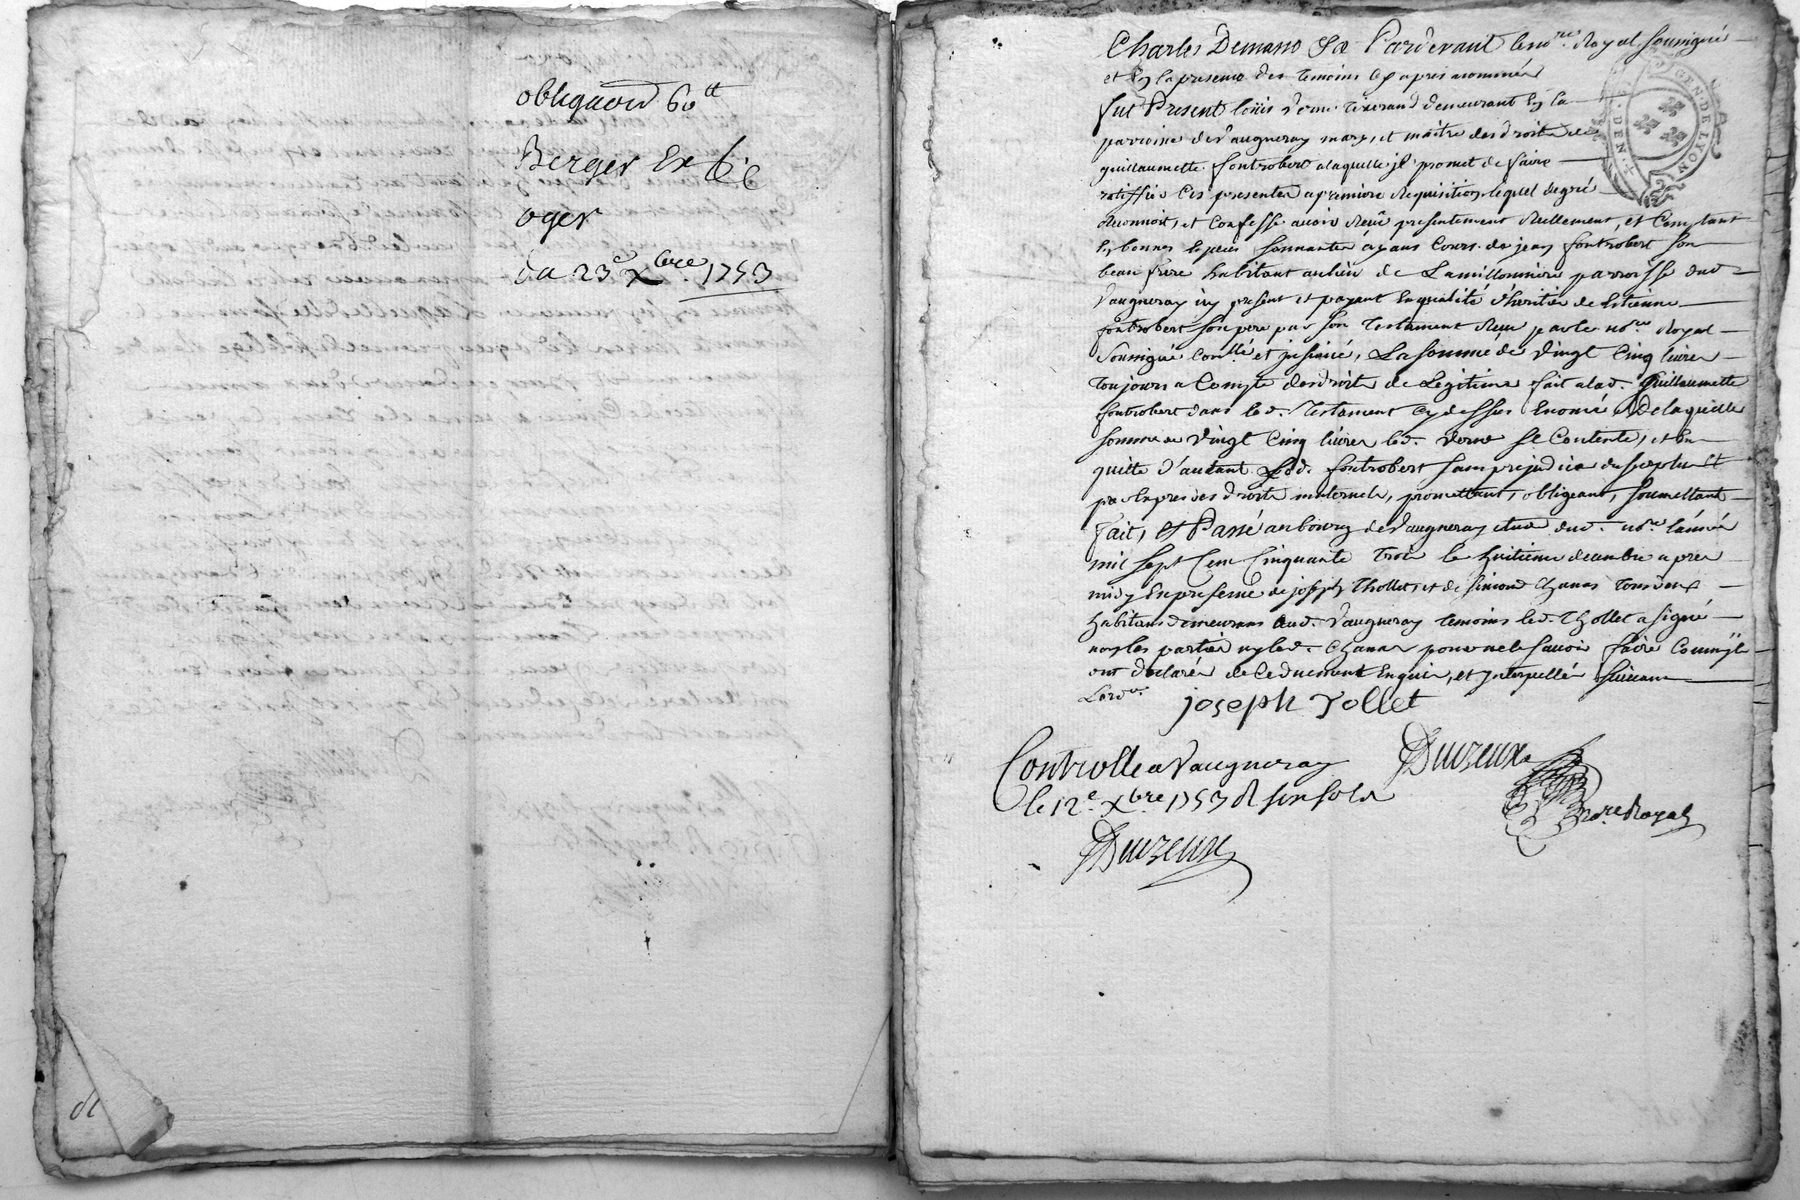 obligaon 60lt
Berger Ex fie
oger
du 23e xbre 1753
Pardevant le nore Royal soussigné
et En la presence des temoins Cy apres nommés
fut Present loüis Verne tixerand demeurant En la
parroisse de Vaugneray mary, et maitre des droits de
guillaumette fontrobert a laquelle jl promet de faire
ratiffié Ces presentes a premiere Requisition, lequel de gré
Reconnoit, et Confesse avoir Reçû presentement Reellement, et Comptant
En bonnes Especes sonnantes ayans Cours de jean fontrobert son
beau frere habitant au lieu de Lamillonniere parroisse dud
Vaugneray icy present et payant En qualité d'heritier de Estienne
fontrobert son pere par son testament Reçu par le nore Royal
Soussigné Conllé et jnsinué, La somme de Vingt Cinq livres
toujours a Compte des droits de Legitime fait a lad. guillaumette
fontrobert dans led. testament Cy dessus Enoncé De laquelle
somme de Vingt Cinq livres led. Verne se Contente, et En
quitte d'autant Led. fontrobert sans prejudice du surplus et
par Expres des droits maternels, promettant, obligeant, soumettant
fait, et Passé au bourg de Vaugneray etude dud. nore l'année
mil sept Cent Cinquante trois le huitieme decembre apres
midy En presence de joseph thollet, et de simond Chanas tous deux
habitans demeurans aud. Vaugneray temoins led. thollet a signé
non les parties ny led. Chanas pour ne le savoir faire Comm'jls
ont declarés de Ce duement Enquis, et jnterpellés suivant
Lordce
joseph Tollet
Controlle a Vaugneray
le 12e xbre 1753 R six sols
Duvzeux
Duvzeux
nore Royal
GEN. DE LYON